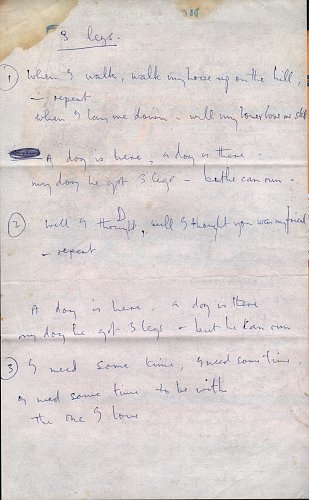 3 legs.
① When I walk, walk my horse up on the hill,
- repeat
when I lay me down - will my lover love me still
A dog is here, a dog is there.
my dog he got 3 legs - but he can run.
② well I thought, D well I thought you was my friend
- repeat
A dog is here a dog is there
my dog he got 3 legs - but he can run
③ I need some time, I need some time,
I need some time to be with
the one I love